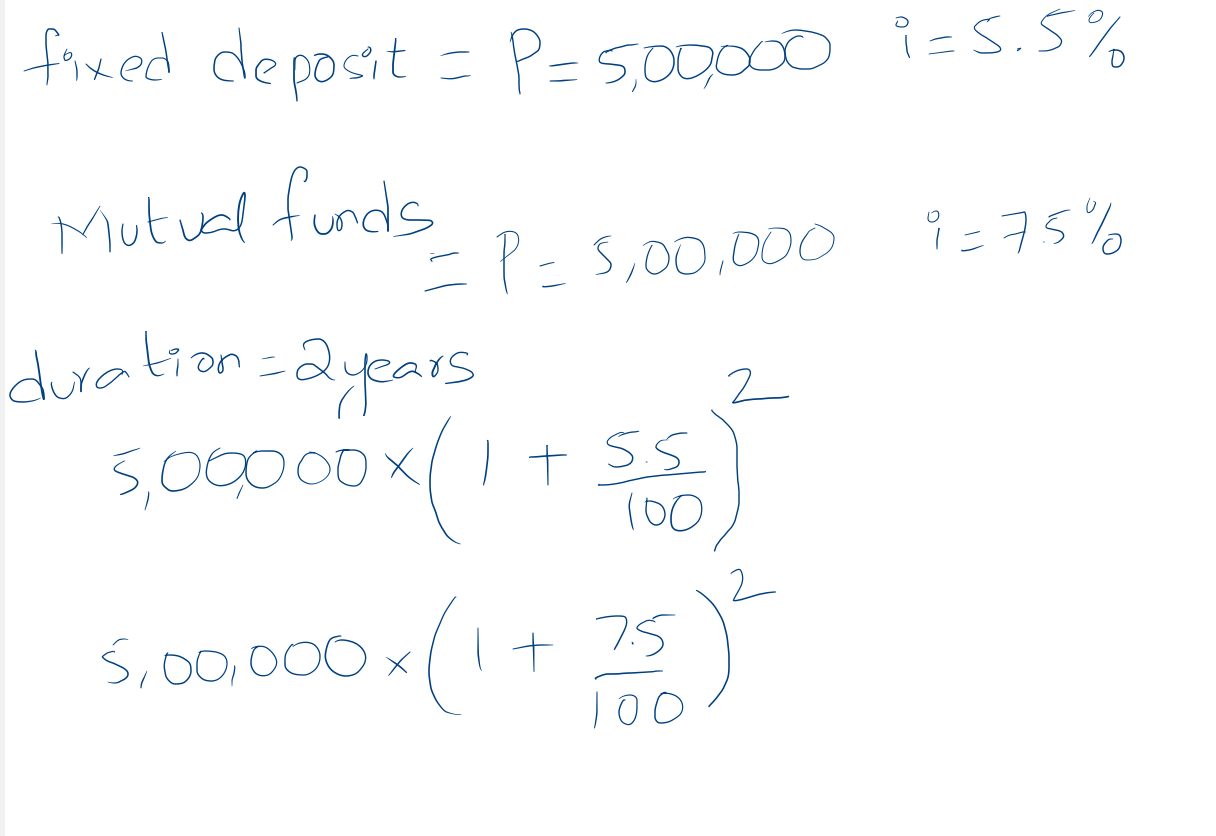 fixed deposit = P = 5,00,000 i = 5.5%
Mutual funds = P = 5,00,000 i = 7.5%
duration = 2 years
5,00,000 × (1 + 5.5/100)^2
5,00,000 × (1 + 7.5/100)^2